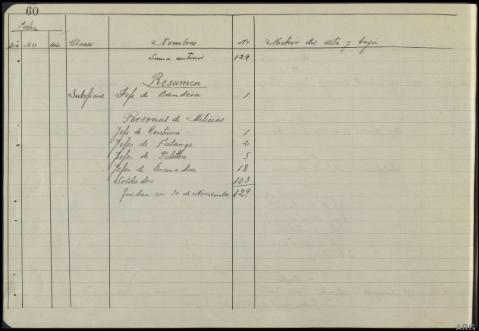 60
Fecha
Dia Mes Año Clases Nombres Nº Motivo del alta y baja
Suma anterior 129
Resumen
Suboficial Jefe de Bandera 1
Personal de Milicias
Jefe de Centuria 1
Jefes de Falange 2
Jefes de Pelotón 5
Jefes de Escuadra 18
Soldados 103
Quedan en 30 de Noviembre 129